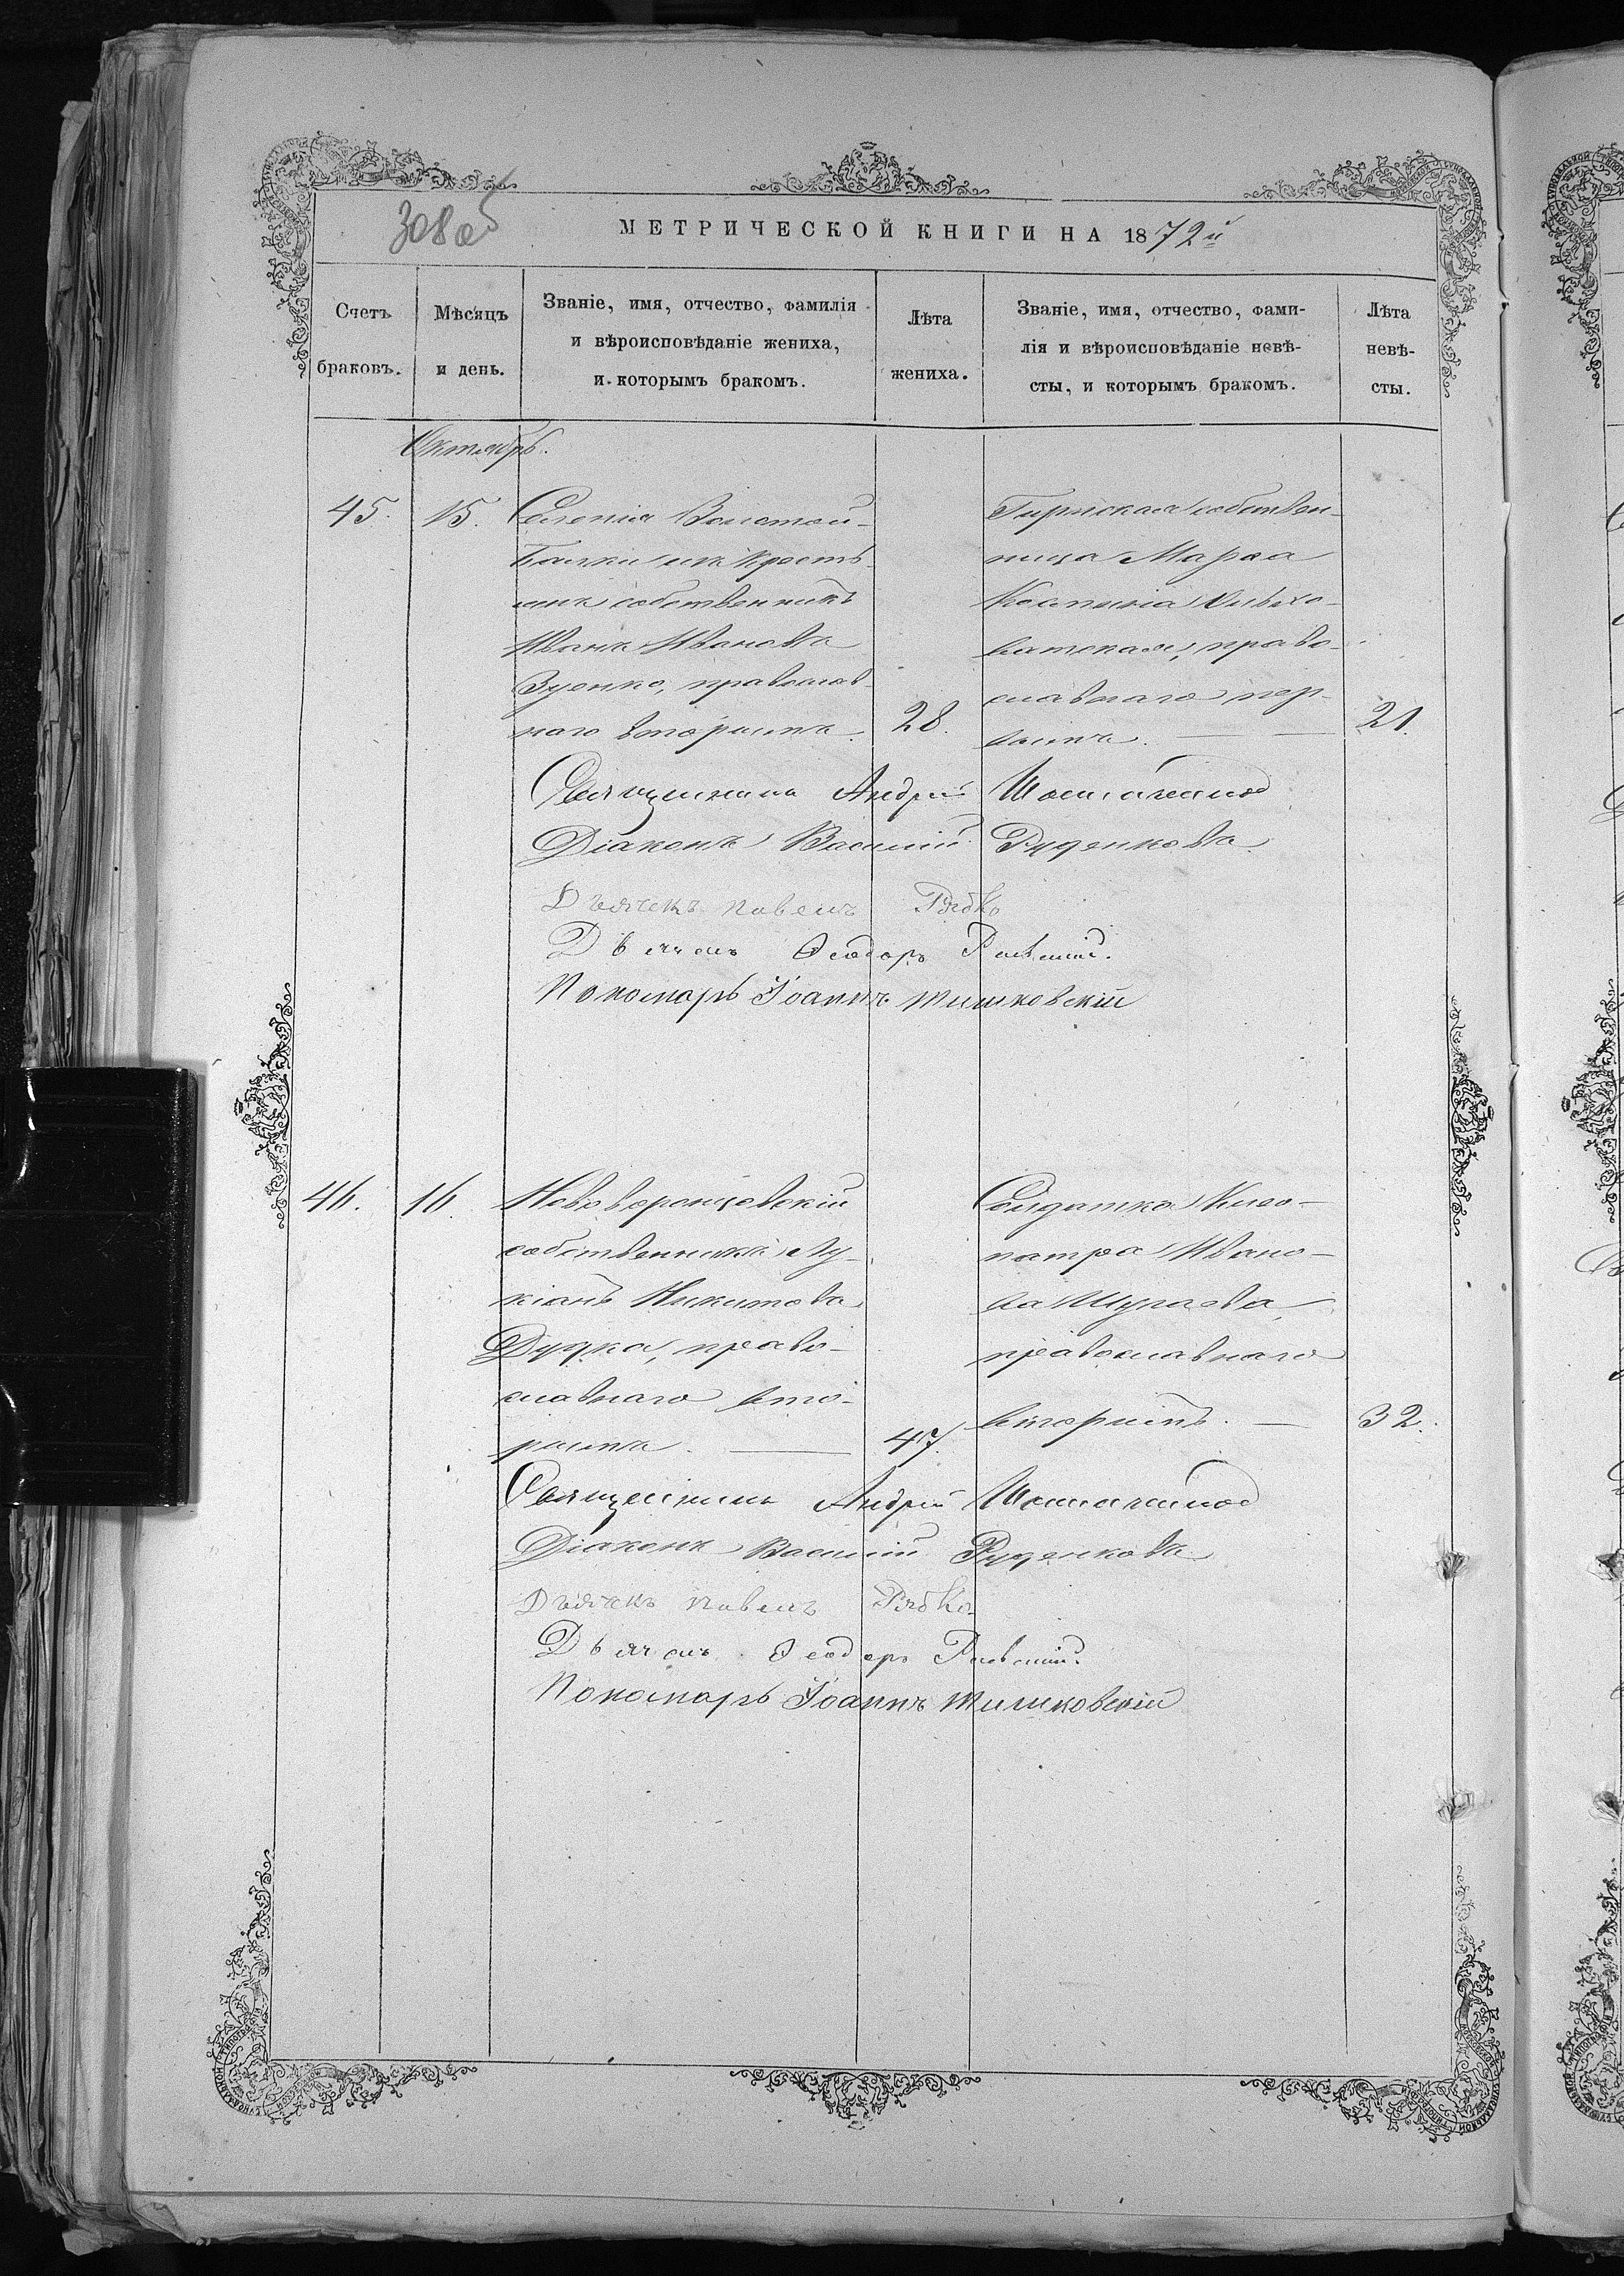 308 об
МЕТРИЧЕСКОЙ КНИГИ НА 1872й
Счетъ браковъ.
Мѣсяцъ и день.
Званіе, имя, отчество, фамилія
и вѣроисповѣданіе жениха,
и которымъ бракомъ.
Лѣта жениха.
Званіе, имя, отчество, фами-
лія и вѣроисповѣданіе невѣ-
сты, и которымъ бракомъ.
Лѣта невѣ-
сты.
Октябрь.
45. 15.
Селенія
Балки
собственникъ
Иванъ Ивановъ
Зуенко, православ-
наго вторымъ. 28.
собствен-
ница Марѳа
право-
славнаго пер-
вымъ. 21.
Священникъ Андрей
Діаконъ Василій Руденковъ
Дьячекъ Павелъ Рябко
Дьячекъ Ѳеодоръ
Пономарь Іоаннъ Тишковскій
46. 16.
Нововоронцовскій
собственникъ Лу-
кіанъ Никитовъ
Дудка, право-
славнаго вто-
рымъ. 47.
Солдатка Клео-
патра Ивано-
ва
православнаго
вторымъ. 32.
Священникъ Андрей
Діаконъ Василій Руденковъ
Дьячекъ Павелъ Рябко
Дьячекъ Ѳеодоръ
Пономарь Іоаннъ Тишковскій